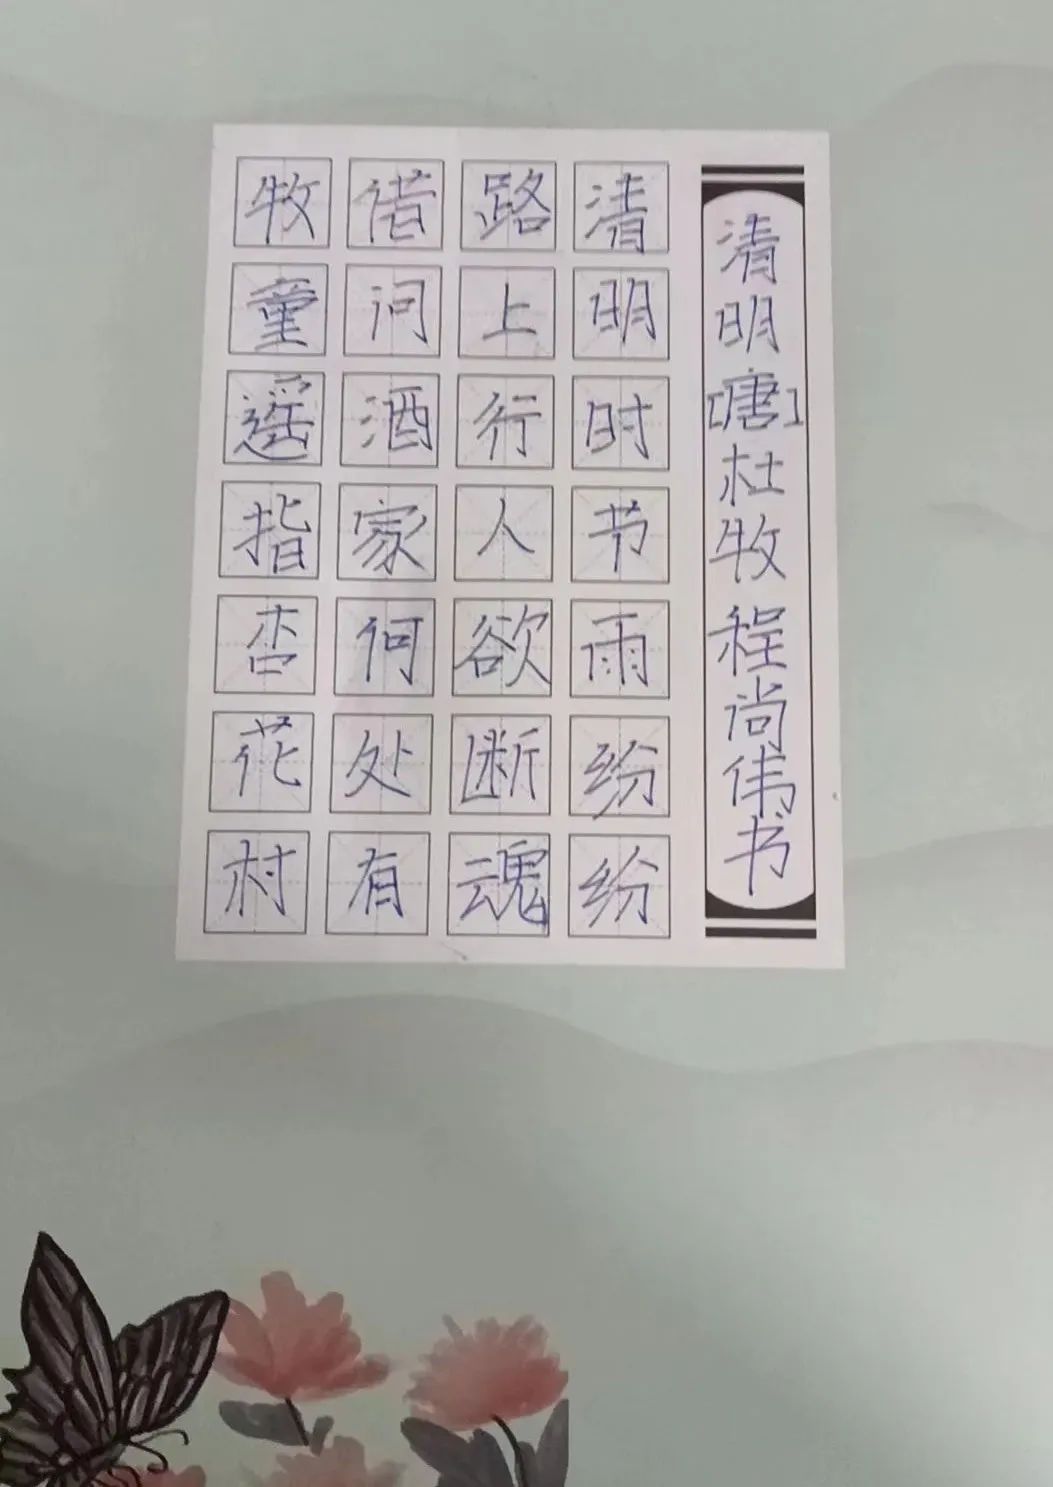 清明[唐]杜牧 程尚伟书
清明时节雨纷纷
路上行人欲断魂
借问酒家何处有
牧童遥指杏花村